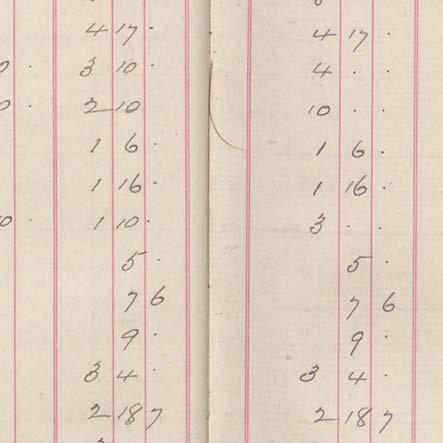 4 17 · 4 17 ·
3 10 · 4 · ·
2 10 10 · ·
1 6 · 1 6 ·
1 16 · 1 16 ·
1 10 · 3 · ·
5 · 5 ·
7 6 7 6
9 · 9 ·
3 4 · 3 4 ·
2 18 7 2 18 7